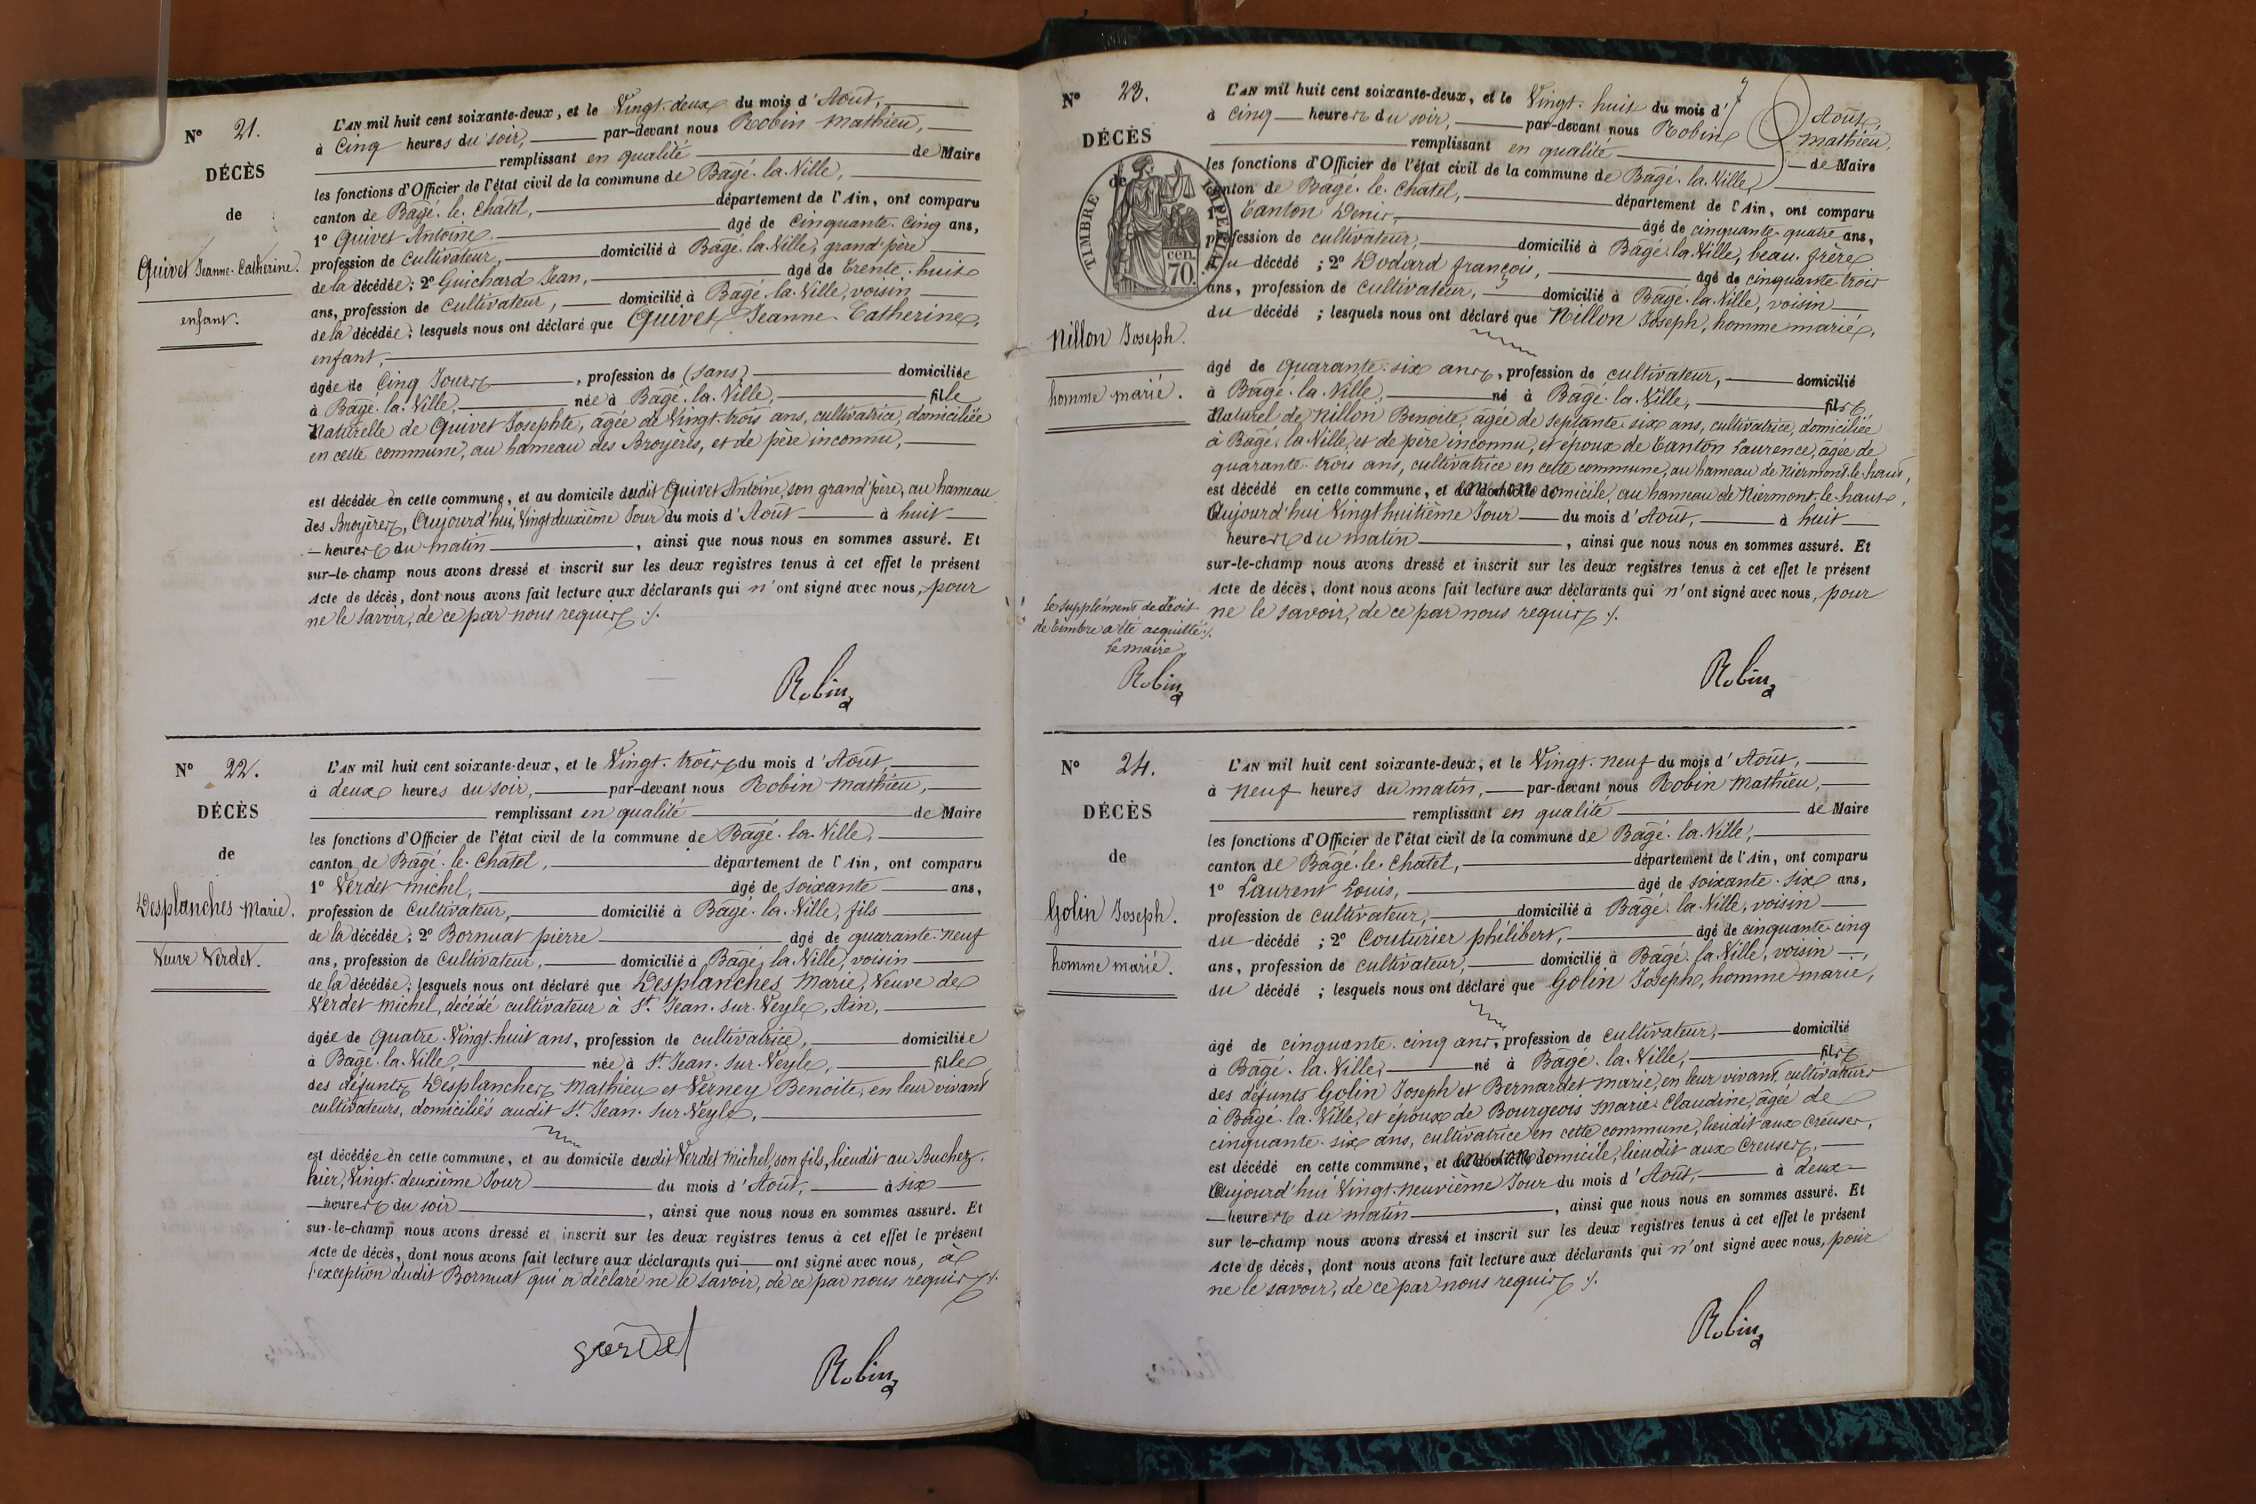 N° 21.
DÉCÈS
de
Quivet Jeanne-Catherine.
enfant.
L'AN mil huit cent soixante-deux, et le Vingt-deux du mois d'Août,
à Cinq heures du soir, par-devant nous Robin Mathieu,
remplissant en qualité de Maire
les fonctions d'Officier de l'état civil de la commune de Bagé-la-Ville,
canton de Bagé-le-Châtel, département de l'Ain, ont comparu
1° Quivet Antoine âgé de Cinquante-Cinq ans,
profession de Cultivateur, domicilié à Bagé-la-Ville, grand'père
de la décédée; 2° Guichard Jean, âgé de Trente-huit
ans, profession de Cultivateur, domicilié à Bagé-la-Ville, voisin
de la décédée; lesquels nous ont déclaré que Quivet Jeanne-Catherine,
enfant,
âgée de Cinq Jours, profession de (sans) domiciliée
à Bagé-la-Ville, née à Bagé-la-Ville, fille
Naturelle de Quivet Josephte, âgée de Vingt-trois ans, cultivatrice, domiciliée
en cette commune, au hameau des Broyères, et de père inconnu,
est décédée en cette commune, et au domicile dudit Quivet Antoine, son grand'père, au hameau
des Broyères, Aujourd'hui, Vingt deuxième Jour du mois d'Août à huit
heures du matin, ainsi que nous nous en sommes assuré. Et
sur-le-champ nous avons dressé et inscrit sur les deux registres tenus à cet effet le présent
Acte de décès, dont nous avons fait lecture aux déclarants qui n'ont signé avec nous, pour
ne le savoir, de ce par nous requis ./.
Robin
N° 22.
DÉCÈS
de
Desplanches Marie.
Veuve Verdet.
L'AN mil huit cent soixante-deux, et le Vingt-trois du mois d'Août,
à deux heures du soir, par-devant nous Robin Mathieu,
remplissant en qualité de Maire
les fonctions d'Officier de l'état civil de la commune de Bagé-la-Ville,
canton de Bagé-le-Châtel, département de l'Ain, ont comparu
1° Verdet Michel, âgé de soixante ans,
profession de Cultivateur, domicilié à Bagé-la-Ville, fils
de la décédée; 2° Bornuat pierre âgé de quarante-neuf
ans, profession de Cultivateur, domicilié à Bagé-la-Ville, voisin
de la décédée; lesquels nous ont déclaré que Desplanches Marie, Veuve de
Verdet Michel, décédé cultivateur à St Jean-sur-Veyle, Ain,
âgée de Quatre-Vingt-huit ans, profession de cultivatrice, domiciliée
à Bagé-la-Ville, née à St Jean-sur-Veyle, fille
des défunts Desplanches Mathieu et Verney Benoite, en leur vivant
cultivateurs, domiciliés audit St Jean-sur-Veyle,
est décédée en cette commune, et au domicile dudit Verdet Michel, son fils, lieudit au Buchez
hier, Vingt-deuxième Jour du mois d'Août, à six
heures du soir, ainsi que nous nous en sommes assuré. Et
sur-le-champ nous avons dressé et inscrit sur les deux registres tenus à cet effet le présent
Acte de décès, dont nous avons fait lecture aux déclarants qui ont signé avec nous, à
l'exception dudit Bornuat qui a déclaré ne le savoir, de ce par nous requis ./.
Robin
N° 23.
DÉCÈS
de
TIMBRE IMPERIAL
70. cen.
Nillon Joseph.
homme marié.
L'AN mil huit cent soixante-deux, et le Vingt-huit du mois d'Août,
à Cinq heures du soir, par-devant nous Robin Mathieu,
remplissant en qualité de Maire
les fonctions d'Officier de l'état civil de la commune de Bagé-la-Ville,
canton de Bagé-le-Châtel, département de l'Ain, ont comparu
1° Tanton Denis, âgé de cinquante-quatre ans,
profession de cultivateur, domicilié à Bagé-la-Ville, beau-frère
du décédé; 2° Dodard françois, âgé de cinquante-trois
ans, profession de Cultivateur, domicilié à Bagé-la-Ville, voisin
du décédé; lesquels nous ont déclaré que Nillon Joseph, homme marié,
âgé de quarante-six ans, profession de cultivateur, domicilié
à Bagé-la-Ville, né à Bagé-la-Ville, fils
Naturel de Nillon Benoite, âgée de septante-six ans, cultivatrice, domiciliée
à Bagé-la-Ville, et de père inconnu, et époux de Tanton Laurence, âgée de
quarante-trois ans, cultivatrice en cette commune, au hameau de Niermont-le-haut,
est décédé en cette commune, et domicile, au hameau de Niermont-le-haut,
Aujourd'hui Vingt huitième Jour du mois d'Août, à huit
heures du matin, ainsi que nous nous en sommes assuré. Et
sur-le-champ nous avons dressé et inscrit sur les deux registres tenus à cet effet le présent
Acte de décès, dont nous avons fait lecture aux déclarants qui n'ont signé avec nous, pour
ne le savoir, de ce par nous requis ./.
Le supplément de droit
de timbre a été acquitté ./.
Le maire
Robin
Robin
N° 24.
DÉCÈS
de
Golin Joseph.
homme marié.
L'AN mil huit cent soixante-deux, et le Vingt-neuf du mois d'Août,
à Neuf heures du matin, par-devant nous Robin Mathieu,
remplissant en qualité de Maire
les fonctions d'Officier de l'état civil de la commune de Bagé-la-Ville,
canton de Bagé-le-Châtel, département de l'Ain, ont comparu
1° Laurent Louis, âgé de soixante-six ans,
profession de cultivateur, domicilié à Bagé-la-Ville, voisin
du décédé; 2° Couturier philibert, âgé de cinquante-cinq
ans, profession de cultivateur, domicilié à Bagé-la-Ville, voisin
du décédé; lesquels nous ont déclaré que Golin Joseph, homme marié,
âgé de cinquante-cinq ans, profession de cultivateur, domicilié
à Bagé-la-Ville, né à Bagé-la-Ville, fils
des défunts Golin Joseph et Bernardet Marie, en leur vivant, cultivateurs
à Bagé-la-Ville, et époux de Bourgeois Marie-Claudine, âgée de
cinquante-six ans, cultivatrice en cette commune, lieudit aux Creuses,
est décédé en cette commune, et domicile, lieudit aux Creuses,
Aujourd'hui Vingt-neuvième Jour du mois d'Août, à deux
heures du matin, ainsi que nous nous en sommes assuré. Et
sur le-champ nous avons dressé et inscrit sur les deux registres tenus à cet effet le présent
Acte de décès, dont nous avons fait lecture aux déclarants qui n'ont signé avec nous, pour
ne le savoir, de ce par nous requis ./.
Robin